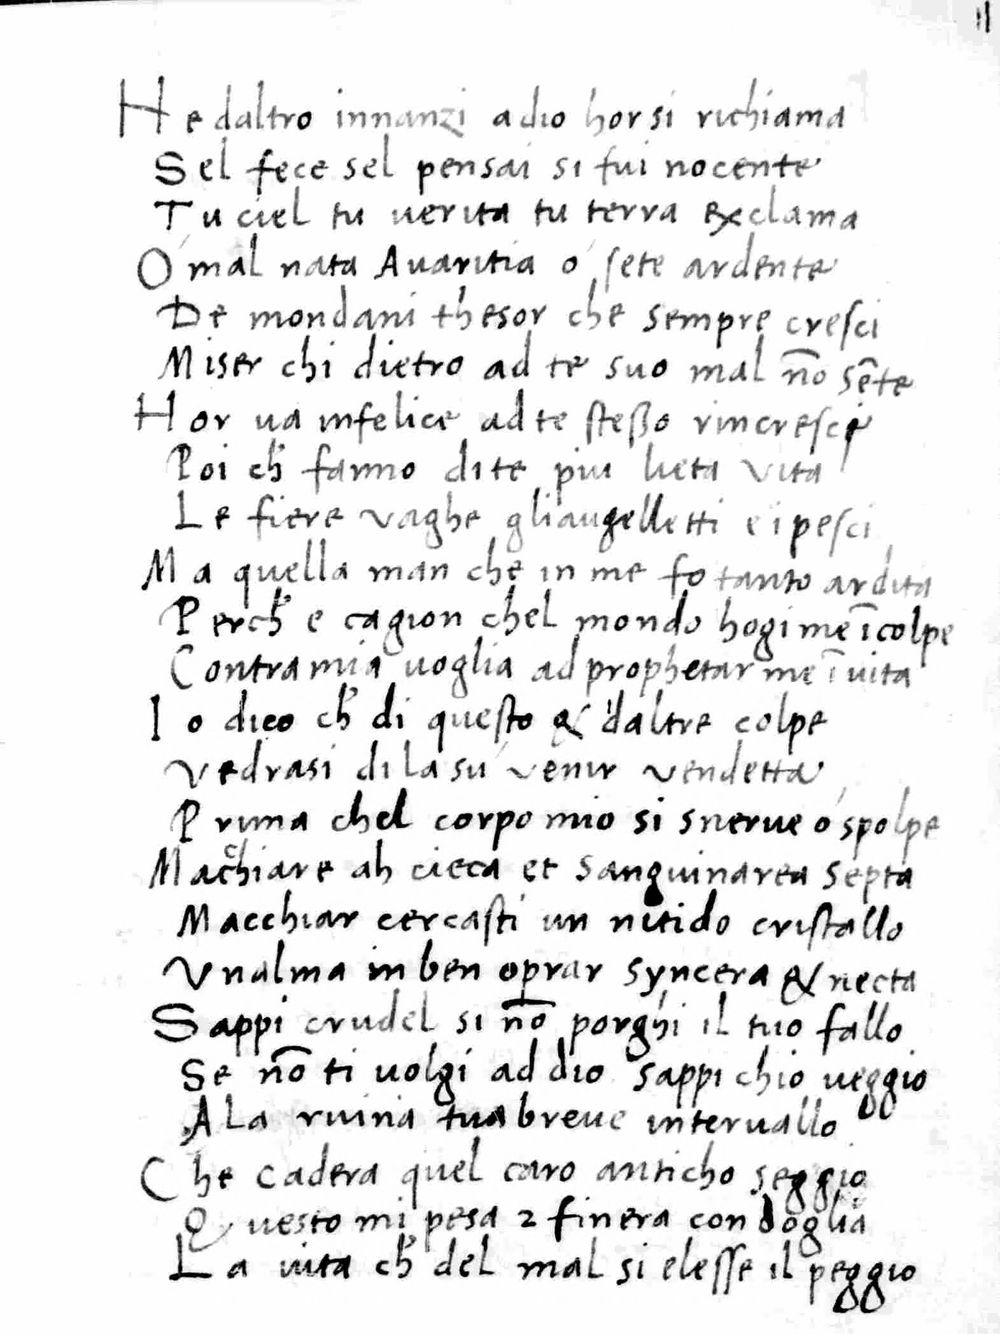 11
He daltro innanzi a dio hor si richiama
Sel fece sel pensai si fui nocente
Tu ciel tu uerita tu terra exclama
O mal nata Auaritia o ſete ardente
De mondani thesor che sempre creſci
Miser chi dietro ad te suo mal nõ sẽte
Hor ua infelice ad te steßo rincreſci
Poi ch̃ fanno di te piu lieta vita
Le fiere vaghe gli augelletti e i peſci
Ma quella man che in me fo tanto ardita
Perch̃ e cagion chel mondo hogi me ĩcolpe
Contra mia uoglia ad prophetar me ĩuita
Io dico ch̃ di questo & daltre colpe
Vedrasi di la sú venir vendetta
Prima chel corpo mio si snerue o spolpe
Machiare ah cieca et sanguinarea septa
Macchiar cercasti un nitido cristallo
Vnalma in ben oprar syncera & necta
Sappi crudel si nõ porghi il tuo fallo
Se nõ ti uolgi ad dio sappi chio ueggio
A La ruina tua breue interuallo
Che cadera quel caro anticho seggio
Questo mi pesa 2 finera con doglia
La uita ch̃ del mal si eleſſe il peggio